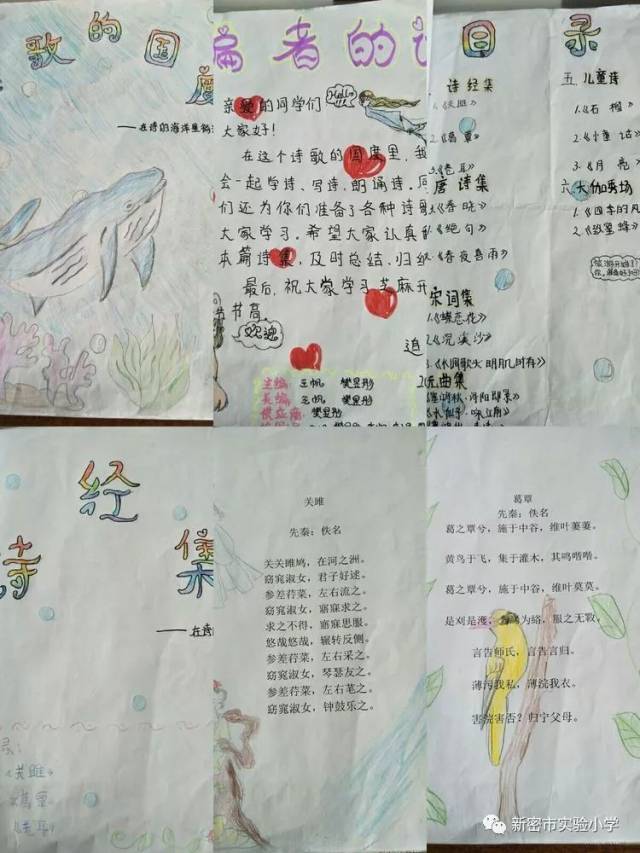 歌的国度
——在诗的海洋里徜
编者的话
亲爱的同学们
大家好！
在这个诗歌的国度里，我
会一起学诗、写诗、朗诵诗，
们还为你们准备了各种诗歌
大家学习。希望大家认真
本篇诗集，及时总结，归纳
最后，祝大家学习芝麻开
节高
欢迎
追
主编：王帆 樊昱彤
目录
诗经集
1.《关雎》
2.《葛覃》
3.《卷耳》
唐诗集
1.《春晓》
2.《绝句》
3.《春夜喜雨》
宋词集
1.《蝶恋花》
2.《浣溪沙》
3.《水调歌头·明月几时有》
元曲集
五.儿童诗
1.《石榴》
2.《童话》
3.《月亮》
1.《四季的风
诗经
堡
——在诗
《关雎》
关雎
先秦：佚名
关关雎鸠，在河之洲。
窈窕淑女，君子好逑。
参差荇菜，左右流之。
窈窕淑女，寤寐求之。
求之不得，寤寐思服。
悠哉悠哉，辗转反侧。
参差荇菜，左右采之。
窈窕淑女，琴瑟友之。
参差荇菜，左右芼之。
窈窕淑女，钟鼓乐之。
葛覃
先秦：佚名
葛之覃兮，施于中谷，维叶萋萋。
黄鸟于飞，集于灌木，其鸣喈喈。
葛之覃兮，施于中谷，维叶莫莫。
是刈是濩，为绤，服之无斁。
言告师氏，言告言归。
薄污我私，薄浣我衣。
害浣害否？归宁父母。
新密市实验小学